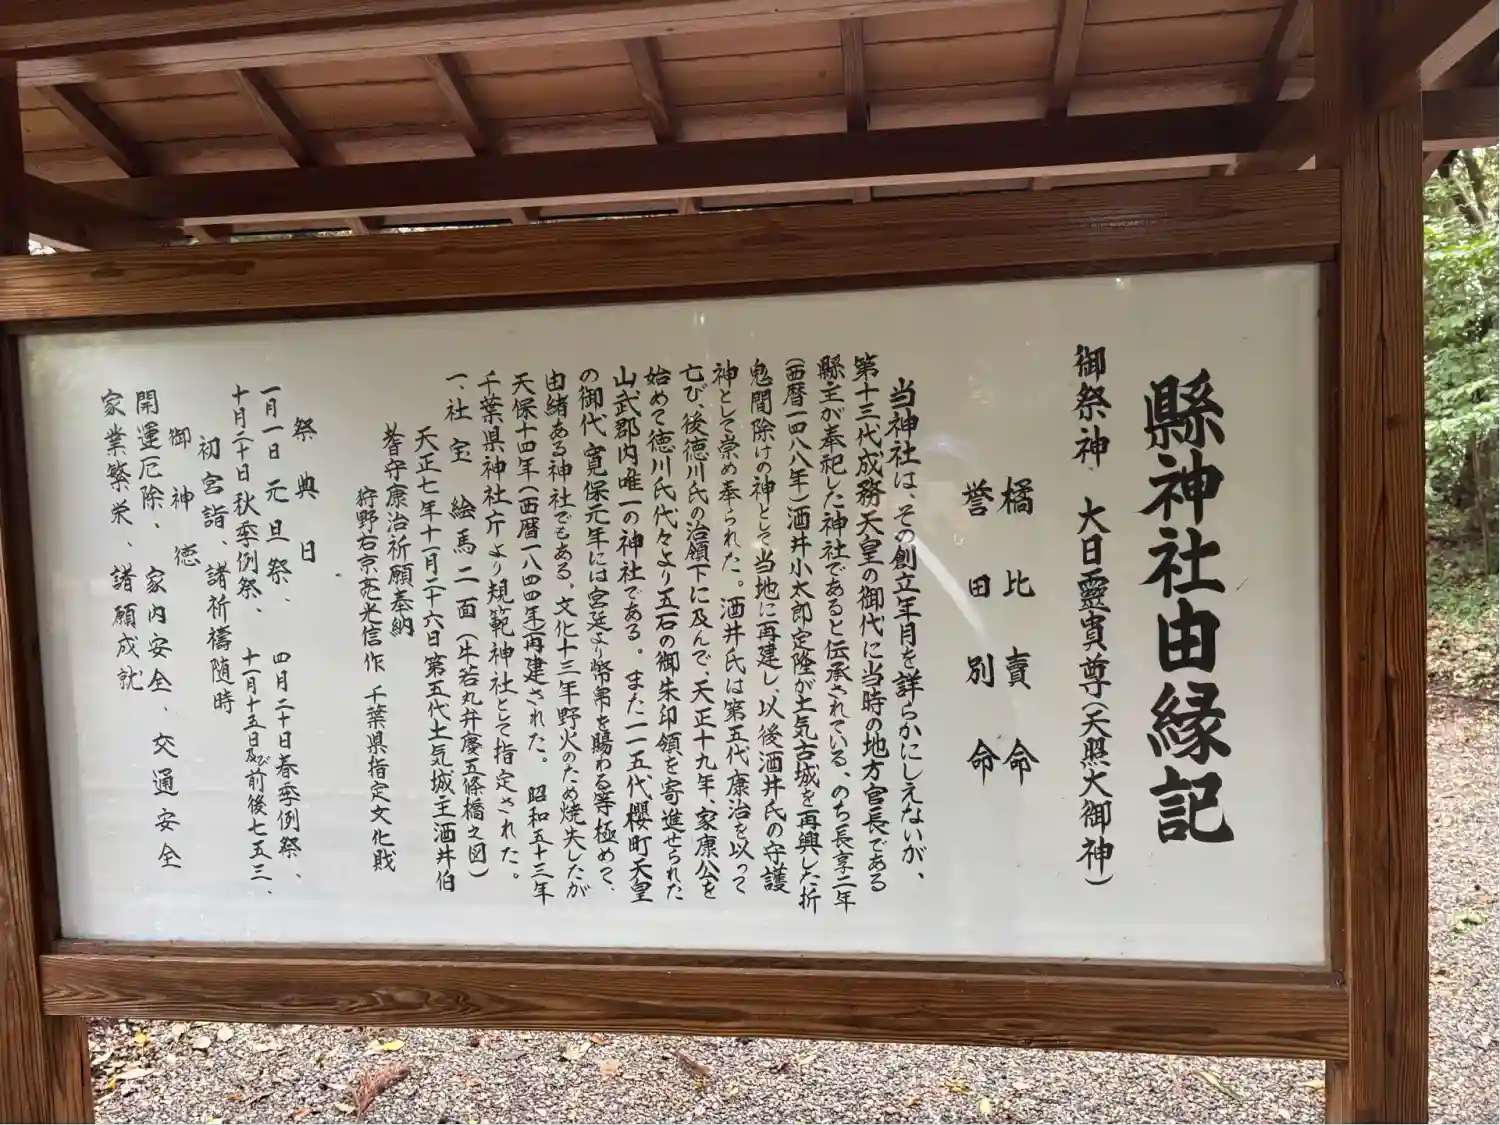 縣神社由縁記
御祭神　大日靈貴尊（天照大御神）
橘比賣命
誉田別命
当神社は、その創立年月を詳らかにしえないが、
第十三代成務天皇の御代に当時の地方官長である
縣主が奉祀した神社であると伝承されている、のち長享二年
（西暦一四八八年）酒井小太郎定隆が土気古城を再興した折
鬼門除けの神として当地に再建し、以後酒井氏の守護
神として崇め奉られた。酒井氏は第五代康治を以って
亡び、後徳川氏の治領下に及んで、天正十九年、家康公を
始めて徳川氏代々より五石の御朱印領を寄進せられた
山武郡内唯一の神社である。また一一五代櫻町天皇
の御代寛保元年には宮廷より幣帛を賜わる等極めて、
由緒ある神社でもある、文化十三年野火のため焼失したが
天保十四年（西暦一八四四年）再建された。昭和五十三年
千葉県神社庁より規範神社として指定された。
一、社宝　絵馬二面（牛若丸弁慶五條橋之図）
天正七年十一月二十六日第五代土気城主酒井伯
耆守康治祈願奉納
狩野右京亮光信作　千葉県指定文化財
祭典日
一月一日元旦祭、　四月二十日春季例祭、
十月二十日秋季例祭、　十一月十五日及び前後七五三、
初宮詣、諸祈禱随時
御神徳
開運厄除、家内安全、交通安全
家業繁栄、諸願成就